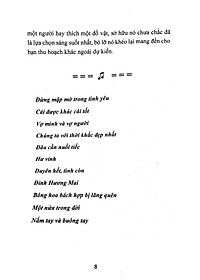 một người hay thích một đồ vật, sở hữu nó chưa chắc đã
là lựa chọn sáng suốt nhất, bỏ lỡ nó khéo lại mang đến cho
bạn thu hoạch khác ngoài dự kiến.
= = = ♫ = = =
Đừng mập mờ trong tình yêu
Cái được khác cái tốt
Vợ mình và vợ người
Chúng ta với thời khắc đẹp nhất
Đâu cần nuối tiếc
Hư vinh
Duyên hết, tình còn
Đinh Hương Mai
Bông hoa bách hợp bị lãng quên
Một nửa trong đời
Nắm tay và buông tay
8